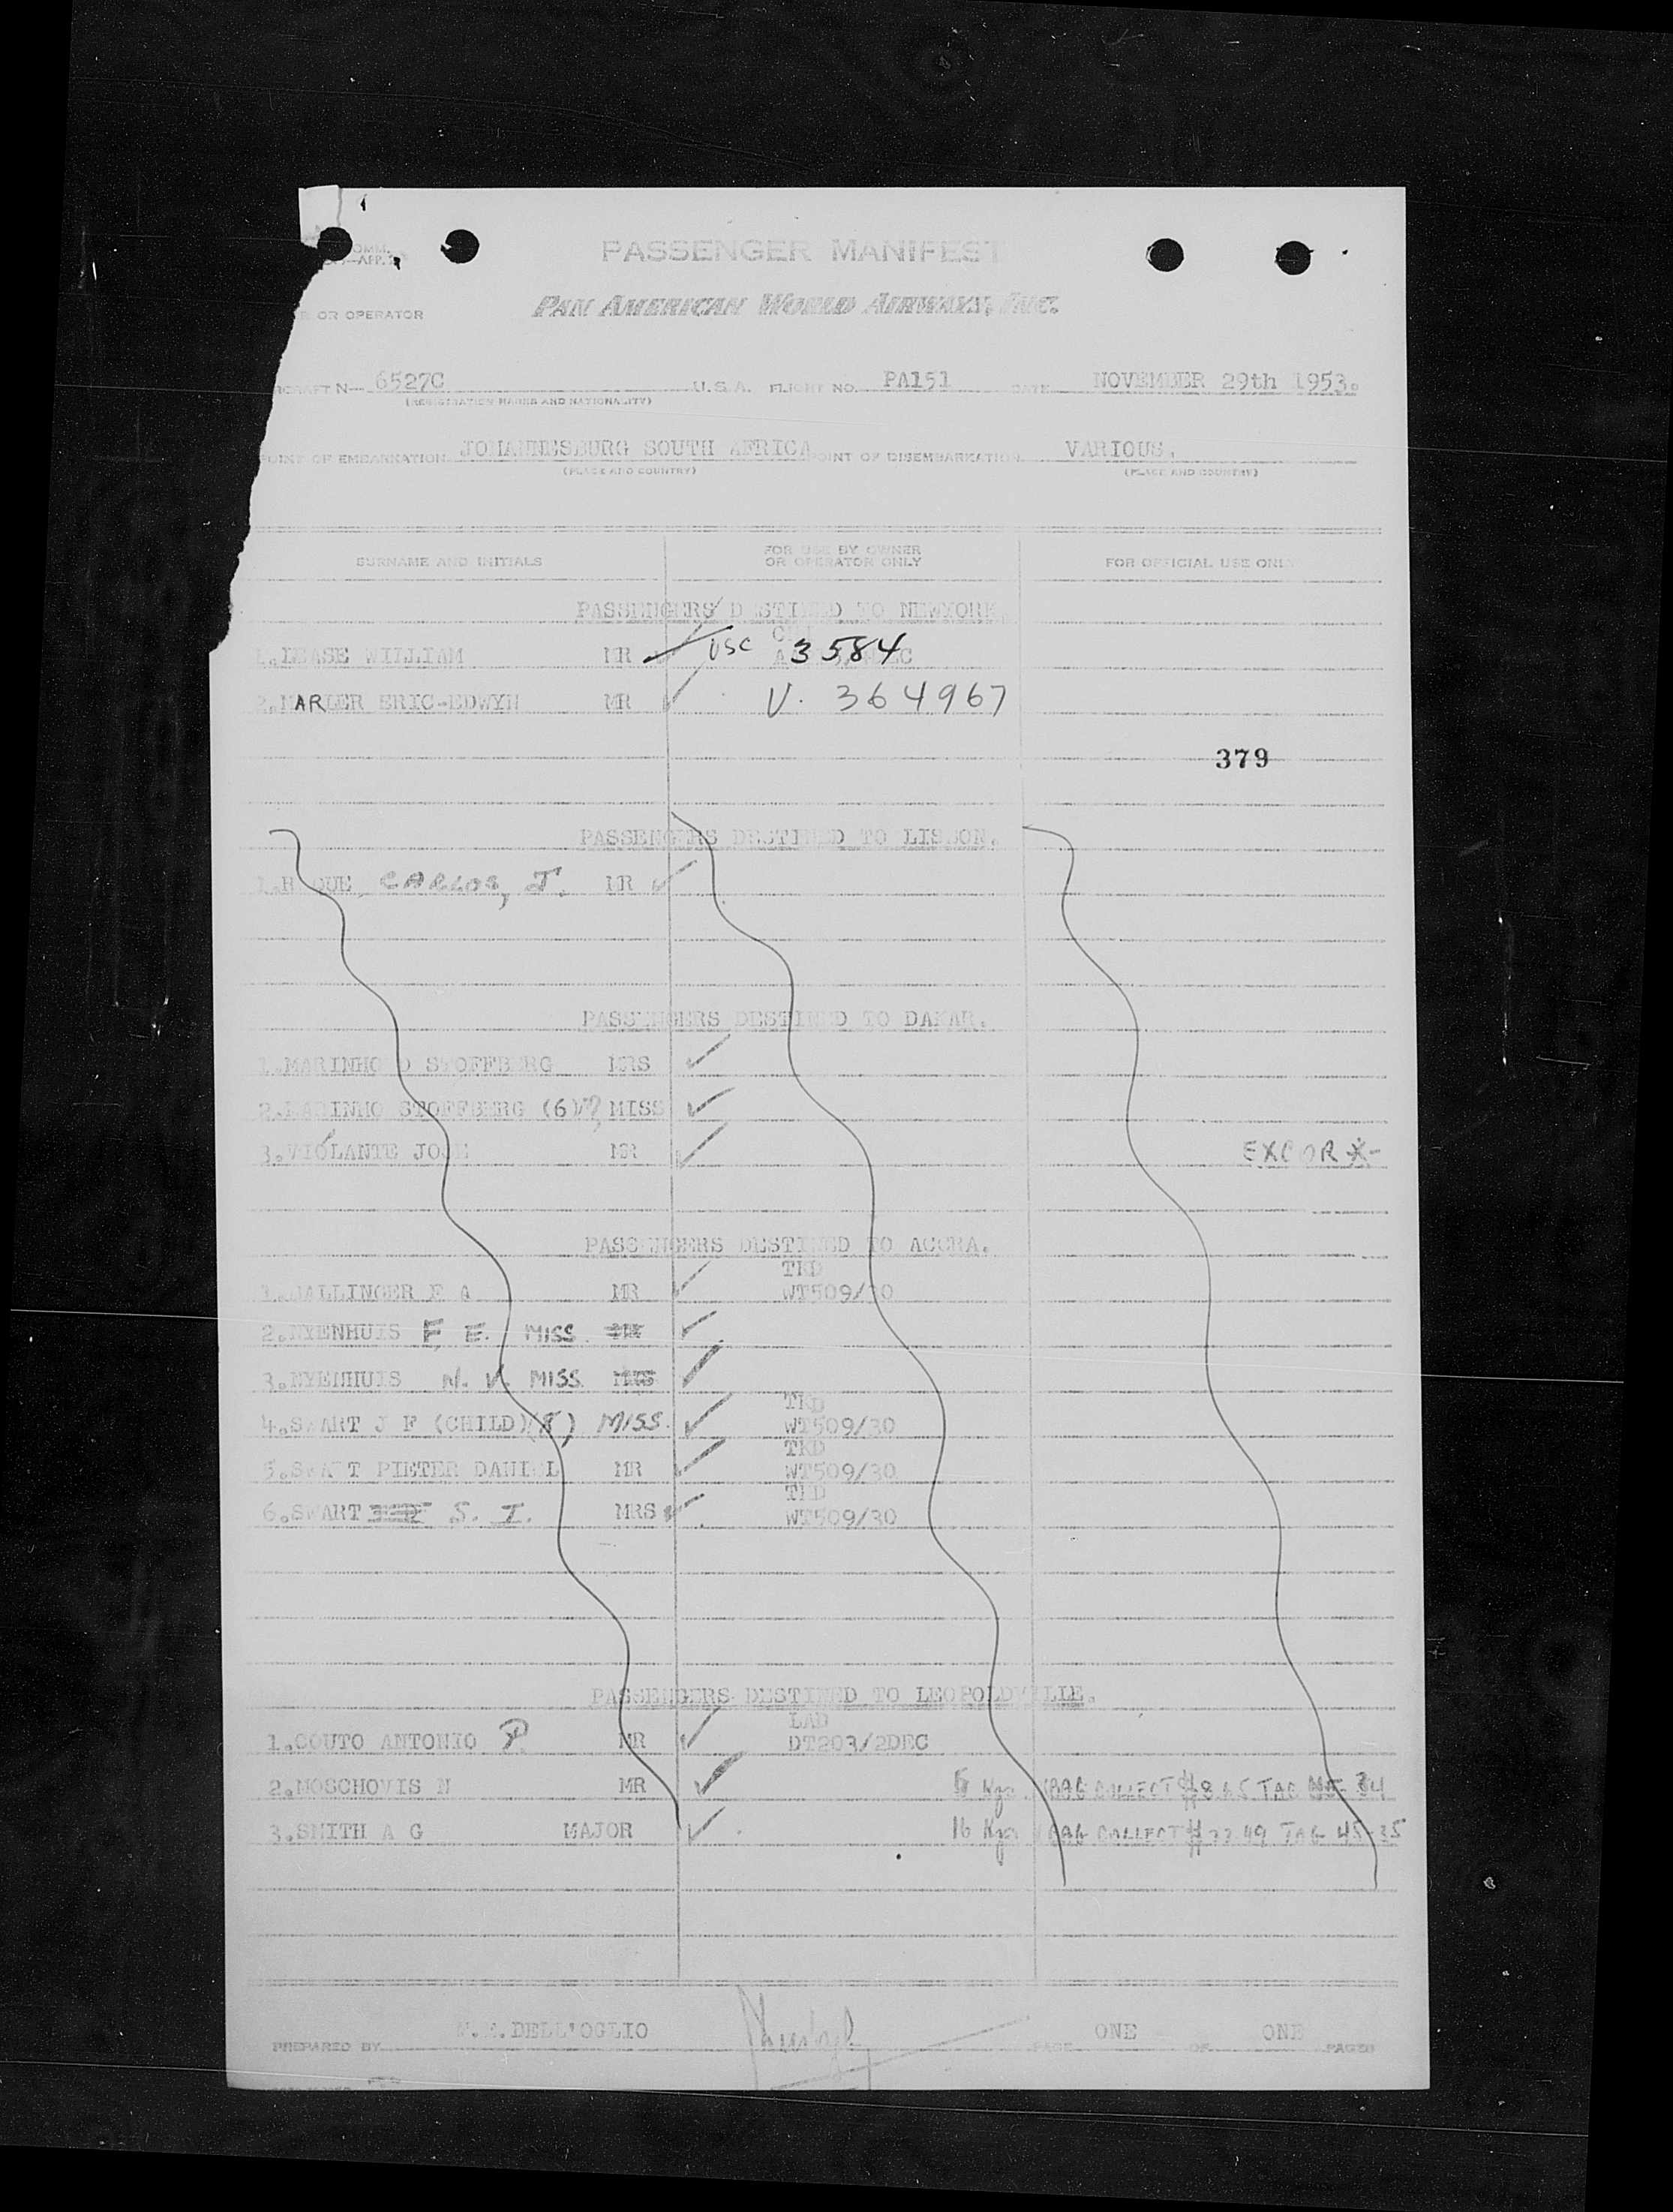 COMM.
—APP. 2
PASSENGER MANIFEST
OR OPERATOR
PAN AMERICAN WORLD AIRWAYS, INC.
N— 6527C U.S.A. FLIGHT NO. PA151 DATE NOVEMBER 29th 1953.
(REGISTRATION MARKS AND NATIONALITY)
POINT OF EMBARKATION JOHANNESBURG SOUTH AFRICA POINT OF DISEMBARKATION VARIOUS.
(PLACE AND COUNTRY) (PLACE AND COUNTRY)
SURNAME AND INITIALS
FOR USE BY OWNER
OR OPERATOR ONLY
FOR OFFICIAL USE ONLY
PASSENGERS DESTINED TO NEWYORK.
1. WILLIAM MR USC 3584
2. ARLER ERIC-EDWYN MR V. 364967
379
PASSENGERS DESTINED TO LISBON.
1. CARLOS, J. MR
PASSENGERS DESTINED TO DAKAR.
1.MARINHO D STOFFBERG MRS
2.MARINHO STOFFBERG (6) MISS
3.VIOLANTE JOSE MR
EXCOR
PASSENGERS DESTINED TO ACCRA.
TKD
1. F A MR WT509/30
2.NYENHUIS F E. MISS
3.NYENHUIS N. V. MISS
TKD
4.SWART J F (CHILD)(8) MISS. WT509/30
TKD
5.SWART PIETER DANIEL MR WT509/30
TKD
6.SWART S. I. MRS WT509/30
PASSENGERS DESTINED TO LEOPOLDVILLE.
LAD
1.COUTO ANTONIO P. MR DT203/2DEC
2.MOSCHOVIS N MR Kgs COLLECT TAG
3.SMITH A G MAJOR 16 Kgs COLLECT TAG 45-35
PREPARED BY DELL'OGLIO PAGE ONE OF ONE PAGES